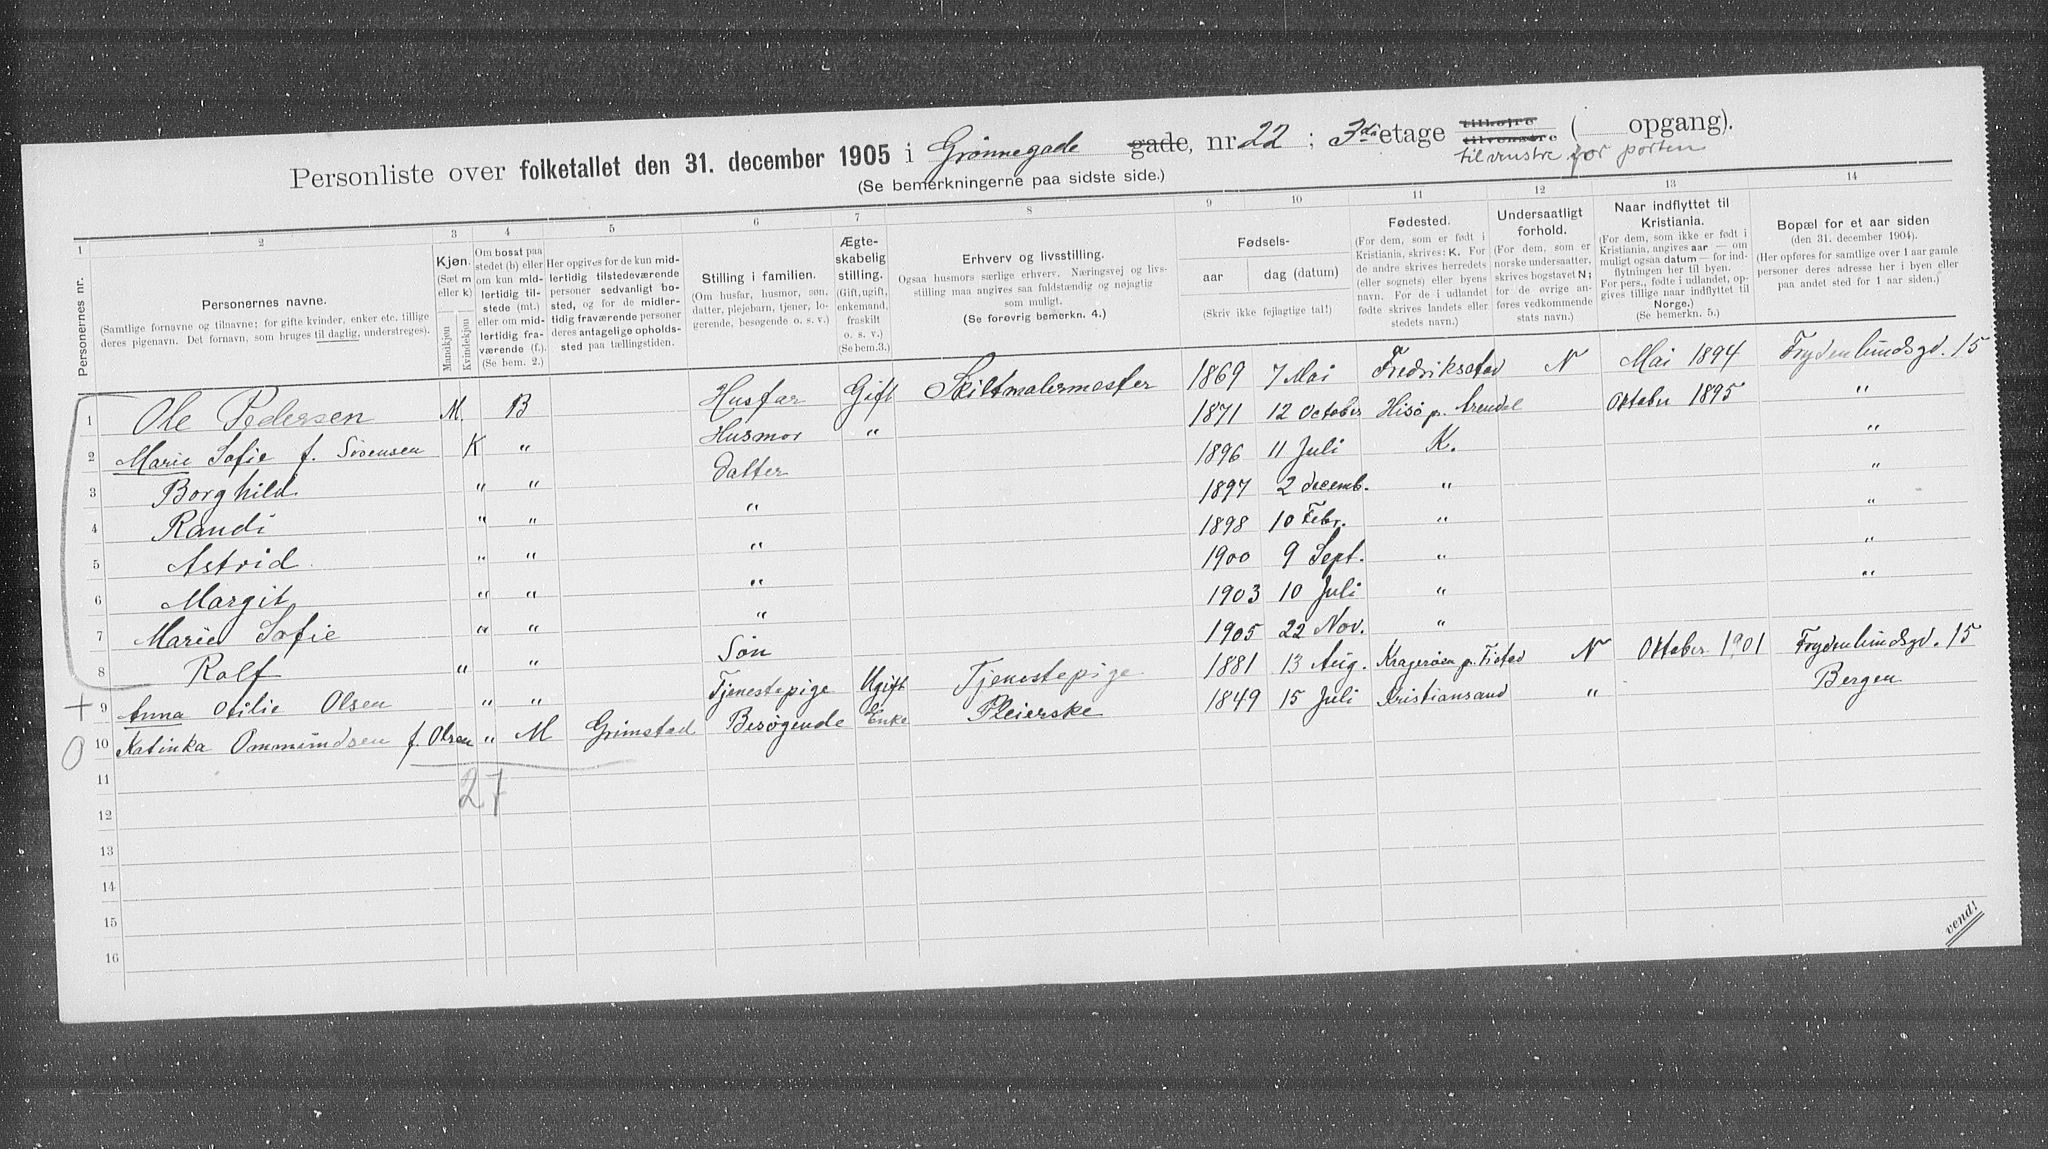 Personliste over folketallet den 31. december 1905 i Grønnegade gade, nr. 22 ; 3die etage tilhøire tilvenstre ( opgang).
til venstre for porten
(Se bemerkningerne paa sidste side.)
1 2 3 4 5 6 7 8 9 10 11 12 13 14
Personernes nr.
Personernes navne.
(Samtlige fornavne og tilnavne; for gifte kvinder, enker etc. tillige deres pigenavn. Det fornavn, som bruges til daglig, understreges).
Kjøn.
(Sæt m eller k)
Mandkjøn
Kvindekjøn
Om bosat paa stedet (b) eller om kun midlertidig tilstede (mt.) eller om midlertidig fraværende (f.) (Se bem. 2.)
Her opgives for de kun midlertidig tilstedeværende personer sedvanligt bosted, og for de midlertidig fraværende personer deres antagelige opholdssted paa tællingstiden.
Stilling i familien.
(Om husfar, husmor, søn, datter, plejebarn, tjener, logerende, besøgende o. s. v.)
Ægteskabelig stilling.
(Gift, ugift, enkemand, fraskilt o. s. v.)
(Se bem.3.)
Erhverv og livsstilling.
Ogsaa husmors særlige erhverv. Næringsvej og livsstilling maa angives saa fuldstændig og nøjagtig som muligt.
(Se forøvrig bemerkn. 4.)
Fødsels-
aar dag (datum)
(Skriv ikke fejlagtige tal!)
Fødested.
(For dem, som er født i Kristiania, skrives: K. For de andre skrives herredets (eller sognets) eller byens navn. For de i udlandet fødte skrives landets eller stedets navn.)
Undersaatligt forhold.
(For dem, som er norske undersaatter, skrives bogstavet N; for de øvrige anføres vedkommende stats navn.)
Naar indflyttet til Kristiania.
(For dem, som ikke er født i Kristiania, angives aar — om muligt ogsaa datum — for indflytningen her til byen. For pers., fødte i udlandet, opgives tillige naar indflyttet til Norge.)
(Se bemerkn. 5.)
Bopæl for et aar siden
(den 31. december 1904).
(Her opføres for samtlige over 1 aar gamle personer deres adresse her i byen eller paa andet sted for 1 aar siden.)
1 Ole Pedersen M. B Husfar Gift Skiltmalermester 1869 7 Mai Fredrikstad N Mai 1894 Frydenlundsgd. 15
2 Marie Sofie f. Sørensen K " Husmor " 1871 12 October Hisø p. Arendal Oktober 1895 "
3 Borghild " " Datter 1896 11 Juli K. "
4 Randi " " " 1897 2 Decemb. " "
5 Astrid " " " 1898 10 Febr. " "
6 Margit " " " 1900 9 Sept. " "
7 Marie Sofie " " " 1903 10 Juli " "
8 Rolf " " Søn 1905 22 Nov. "
+ 9 Anna Otilie Olsen " " Tjenestepige Ugift Tjenestepige 1881 13 Aug. Kragerøen p. F.stad N Oktober 1901 Frydenlundsgd. 15
0 10 Katinka Ommundsen f. Olsen " M Grimstad Besøgende Enke Pleierske 1849 15 Juli Kristiansand " Bergen
27
11
12
13
14
15
16
vend!